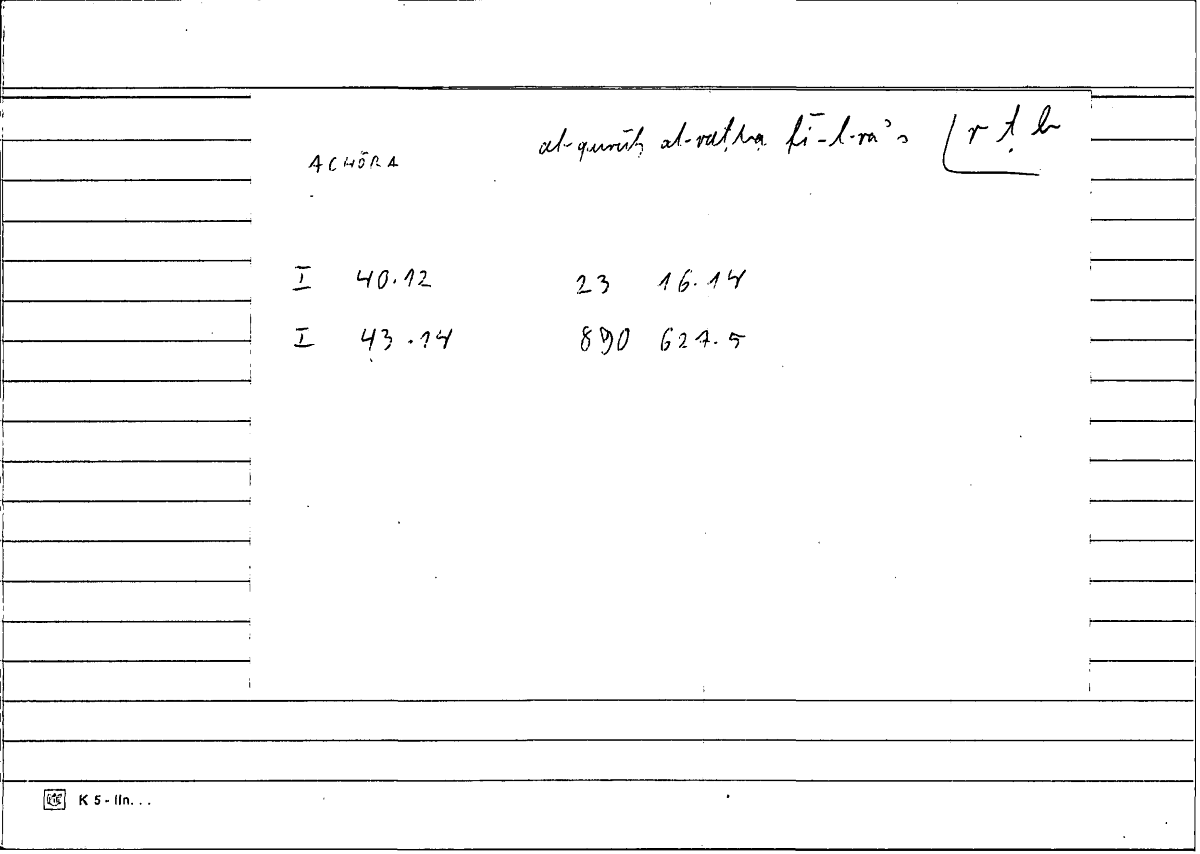 al-qurūḥ al-raṭba fī-l-ra's r ṭ b
ACHŌRA
I 40.12 23 16.14
I 43.14 890 627.5
K 5 - lIn. . .